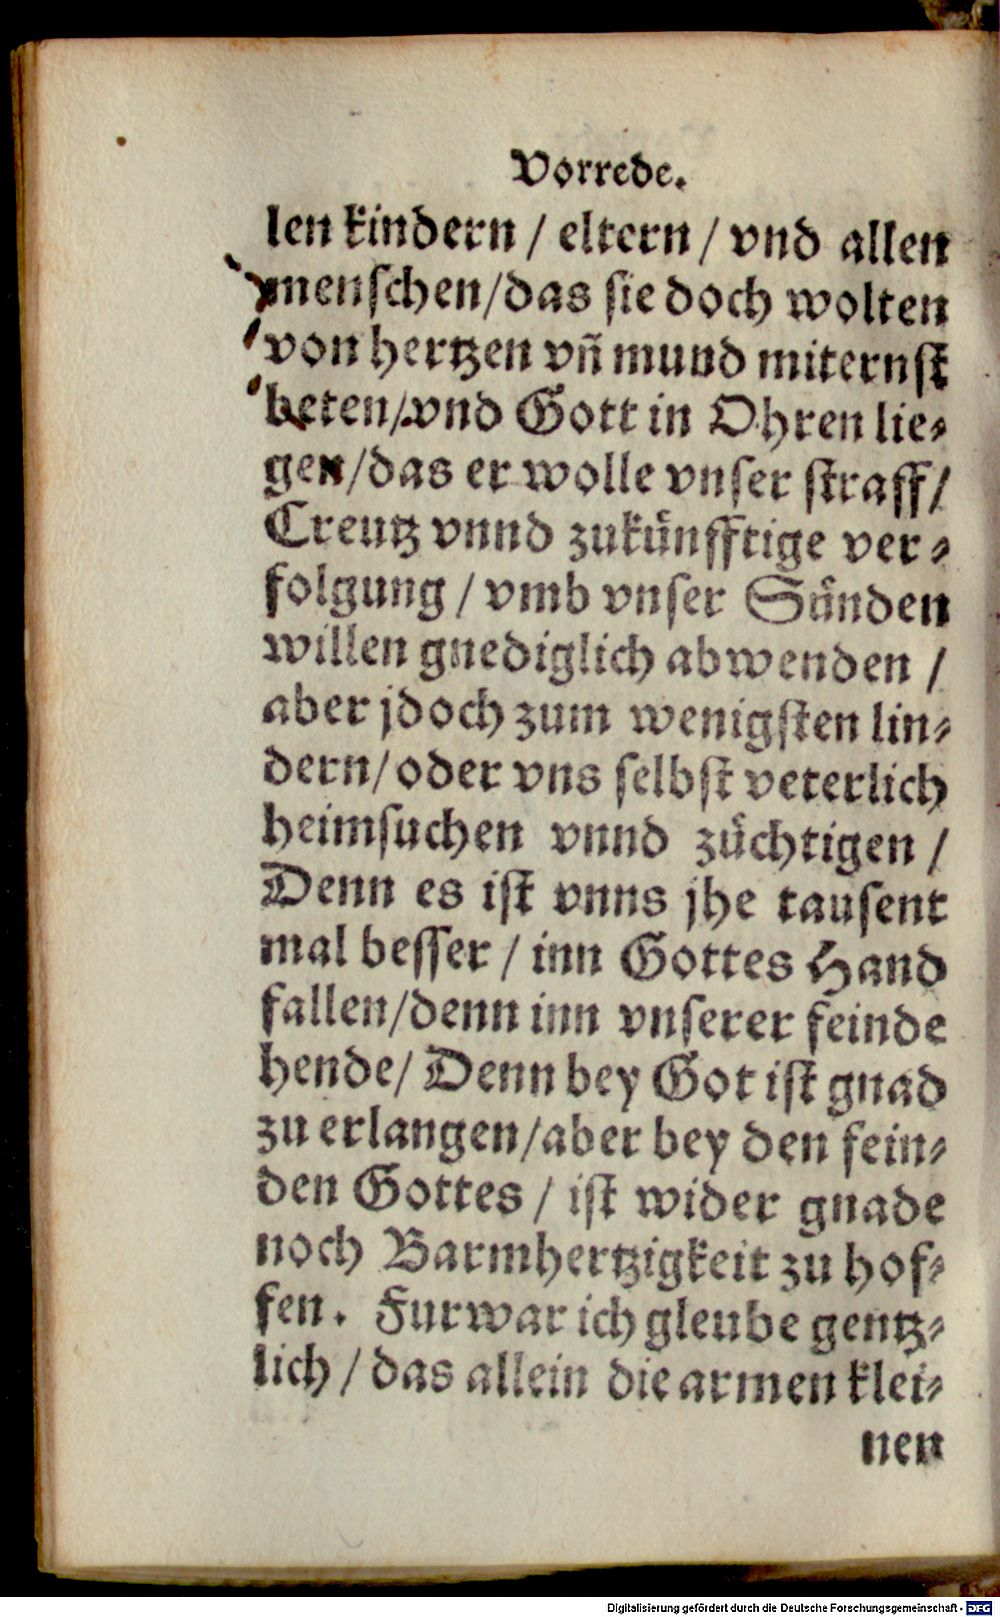 Vorrede.
len kindern / eltern / vnd allen
menschen/das sie doch wolten
von hertzen vñ mund mit ernst
beten/vnd Gott in Ohren lie⸗
gen/das er wolle vnser straff/
Creutz vnnd zukünfftige ver⸗
folgung / vmb vnser Sünden
willen gnediglich abwenden /
aber jdoch zum wenigsten lin⸗
dern/oder vns selbst veterlich
heimsuchen vnnd züchtigen /
Denn es ist vnns jhe tausent
mal besser / inn Gottes Hand
fallen/denn inn vnserer feinde
hende/ Denn bey Got ist gnad
zu erlangen/aber bey den fein⸗
den Gottes / ist wider gnade
noch Barmhertzigkeit zu hof⸗
fen. Furwar ich gleube gentz⸗
lich / das allein die armen klei⸗
nen
Digitalisierung gefördert durch die Deutsche Forschungsgemeinschaft - DFG